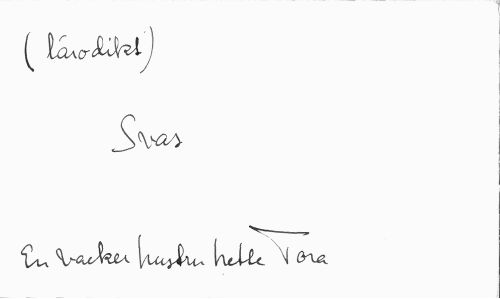 (lärodikt)
Svar
En vacker hustru hette Tora